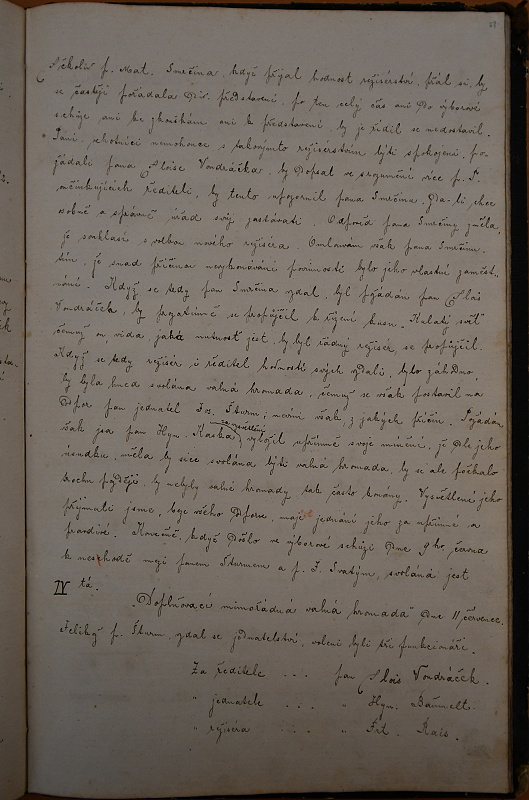 Ačkoliv p. Mat. Smrčina, když přijal hodnost režisérství, přál si, by
se častěji pořádala div. představení, po ten celý čas ani do výborové
schůze ani ke zkouškám ani k představení by je řídil se nedostavil.
Páni ochotníci nemohouce s takovýmto režisérstvím býti spokojeni, po-
žádali pana Aloise Vondráčka, by dopsal ve srozumění více p. P.
řediteli, by tento upozornil pana Smrčinu. Dá-li chce
osobně a správně úřad svůj zastávati. Odpověď pana Smrčiny zněla,
že souhlasí s volbou nového režiséra. Omlouvám však pana Smrčinu
tím, že snad příčina nevykonávání povinností bylo jeho vlastní zaměst-
nání. Když se tedy pan Smrčina vzdal, byl požádán pan Alois
Vondráček, by prozatímně se propůjčil k řízení kusu.
čemuž on, vida, jaká nutnost jest, by byl řádný režisér, se propůjčil.
Když se tedy režisér, i ředitel hodností svých vzdali, bylo žádáno,
by byla hned svolána valná hromada, čemuž se však postavil na
odpor pan jednatel Fr. Šturm, nevím však, z jakých příčin. Požádán
však jsa pan Hyn. Kaska za vysvětlení, vyložil upřímně svoje mínění, že dle jeho
úsudku, měla by sice svolána býti valná hromada, by se ale počkalo
trochu později, by nebyly valné hromady tak často konány. Vysvětlení jeho
přijmuli jsme, beze všeho odporu, majíce jednání jeho za upřímné a
pravdivé. Konečně, když došlo ve výborové schůzi dne 9ho června
k neshodě mezi panem Šturmem a p. J. Svatým, svolána jest
IV tá.
„Doplňovací mimořádná valná hromada" dne 11 července.
Jelikož p. Šturm, vzdal se jednatelství, voleni byli tři funkcionáři.
Za ředitele . . . pan Alois Vondráček.
„ jednatele . . . „ Hyn. Bäumelt.
„ režiséra . . . „ Frt. Rais.